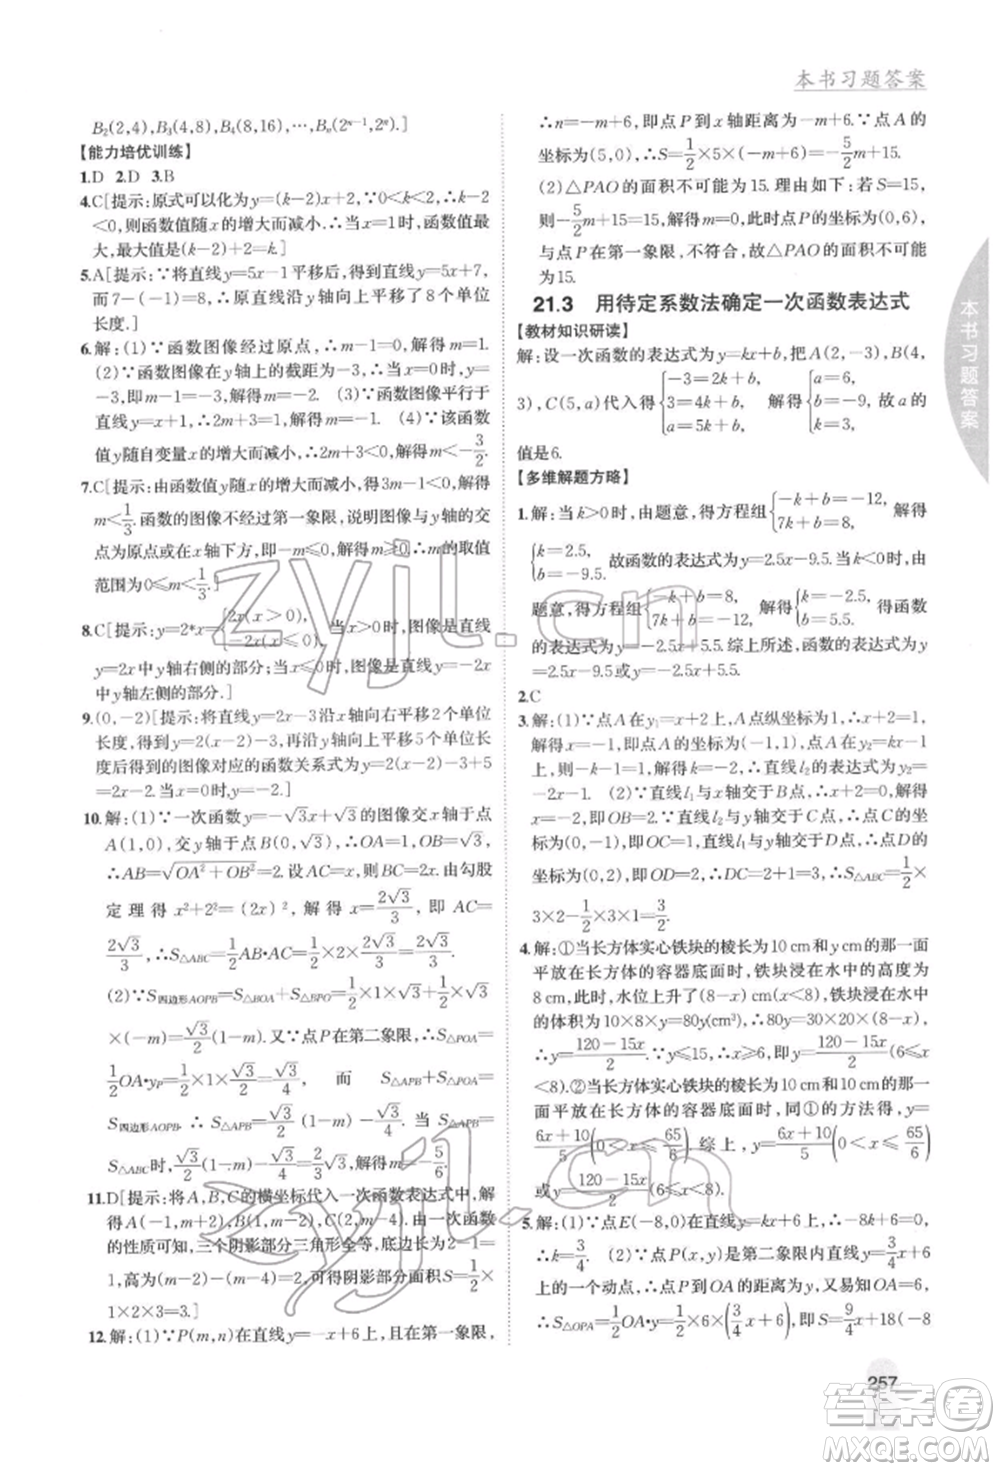 本书习题答案
B₂(2,4),B₃(4,8),B₄(8,16),…,Bₙ(2ⁿ⁻¹,2ⁿ).]
【能力培优训练】
1.D 2.D 3.B
4.C[提示:原式可以化为y=(k-2)x+2,∵0<k<2,∴k-2<0,则函数值随x的增大而减小.∴当x=1时,函数值最
大,最大值是(k-2)+2=k.]
5.A[提示:∵将直线y=5x-1平移后,得到直线y=5x+7,
而7-(-1)=8,∴原直线沿y轴向上平移了8个单位
长度.]
6.解:(1)∵函数图像经过原点,∴m-1=0,解得m=1.
(2)∵函数图像在y轴上的截距为-3,∴m-1=-3,
解得m=-2. (3)∵函数图像平行于
直线y=x+1,∴2m+3=1,∴m=-1. (4)∵该函
数值y随自变量x的增大而减小,∴2m+3<0,∴m<-3/2.
7.C[提示:由函数值y随x的增大而减小,得3m-1<0,则m
<1/3.函数的图像不经过第一象限,说明图像与y轴的交
点为原点或在y轴下方,即-m≤0,∴m≥0.∴m的取值
范围为0≤m<1/3.]
8.C[提示:y=2*x={2x(x>0), -2x(x≤0),当x>0时,图像是直线
y=2x中y轴右侧的部分;当x≤0时,图像是直线y=-2x
中y轴左侧的部分.]
9.(0,-2)[提示:将直线y=2x-3沿x轴向右平移2个单位
长度,得到y=2(x-2)-3,再沿y轴向上平移5个单位长
度后得到的图像对应的函数关系式为y=2(x-2)-3+5
=2x-2.当x=0时,y=-2.]
10.解:(1)∵一次函数y=-√3x+√3的图像交x轴于点
A(1,0),交y轴于点B(0,√3),∴OA=1,OB=√3.
∴AB=√(OA²+OB²)=2.设AC=x,则BC=2x.由勾股
定理得x²+2²=(2x)²,解得x=2√3/3,即AC=
2√3/3,∴S△ABC=1/2AB·AC=1/2×2×2√3/3=2√3/3.
(2)∵S四边形AOPB=S△BOA+S△BPO=1/2×1×√3+1/2×√3×
(-m)=√3/2(1-m).又∵点P在第二象限,∴S△POA=
1/2OA·yP=1/2×1×√3/2=√3/4, 而 S△APB+S△POA=
S四边形AOPB,∴S△APB=√3/2(1-m)-√3/4.当 S△APB=
S△ABC时,√3/2(1-m)-√3/4=2√3/3,解得m=-5/6.
11.D[提示:将A,B,C的横坐标代入一次函数表达式中,解
得A(-1,m+2),B(1,m-2),C(2,m-4).由一次函数
的性质可知,三个阴影部分三角形全等,底边长为2-1=
1,高为(m-2)-(m-4)=2,可得阴影部分面积S=1/2
×1×2×3=3.]
12.解:(1)∵P(m,n)在直线y=-x+6上,且在第一象限,
∴n=-m+6,即点P到x轴距离为-m+6.∵点A的
坐标为(5,0),∴S=1/2×5×(-m+6)=-5/2m+15.
(2)△PAO的面积不可能为15.理由如下:若S=15,
则-5/2m+15=15,解得m=0,此时点P的坐标为(0,6),
与点P在第一象限,不符合,故△PAO的面积不可能
为15.
21.3 用待定系数法确定一次函数表达式
【教材知识研读】
解:设一次函数的表达式为y=kx+b,把A(2,-3),B(4,
3),C(5,a)代入得{-3=2k+b, 3=4k+b, a=5k+b,解得{k=3, b=-9, a=6,故a的
值是6.
【多维解题方略】
1.解:当k>0时,由题意,得方程组{-k+b=-12, 7k+b=8,解得
{k=2.5, b=-9.5.∴函数的表达式为y=2.5x-9.5.当k<0时,由
题意,得方程组{-k+b=8, 7k+b=-12,解得{k=-2.5, b=5.5.得函数
的表达式为y=-2.5x+5.5.综上所述,函数表达式为y=
2.5x-9.5或y=-2.5x+5.5.
2.C
3.解:(1)∵点A在直线y₁=x+2上,A点纵坐标为1,∴x+2=1,
解得x=-1.∴点A的坐标为(-1,1),∵点A在y₂=kx-1
上,∴-k-1=1,解得k=-2.∴直线l₂的表达式为y₂=
-2x-1. (2)∵直线l₂与y轴交于点C,∴点C的坐标为
(0,-1),即OC=1.∵直线l₁与y轴交于点D,∴点D的
坐标为(0,2),即OD=2,∴DC=2+1=3,∴S△ABC=1/2×
3×2-1/2×3×1=3/2.
4.解:①当长方体实心铁块的棱长为10 cm和y cm的那一面
平放在长方体的容器底面时,铁块浸在水中的高度为
8 cm,此时,水位上升了(8-x) cm(x<8),铁块浸在水中
的体积为10×8×y=80y(cm³),∴80y=30×20×(8-x).
∴y=(120-15x)/2.∵y≤15,∴x≥6.∴y=(120-15x)/2(6≤x
<8).②当长方体实心铁块的棱长为10 cm和10 cm的那一
面平放在长方体的容器底面时,同①的方法得,y=
(6x+10)/5(0<x≤65/6).综上,y=(6x+10)/5(0<x≤65/6)
或y=(120-15x)/2(6≤x<8).
5.解:(1)∵点E(-8,0)在直线y=kx+6上,∴-8k+6=0,
∴k=3/4. (2)∵点P(x,y)是第二象限内直线y=3/4x+6
上的一个动点,∴点P到OA的距离为y,又易知OA=6,
∴S△OPA=1/2OA·y=1/2×6×(3/4x+6),即S=9/4x+18(-8
本书习题答案
257
zyjl.cn
zyjl.cn
答案圈
MXQE.COM